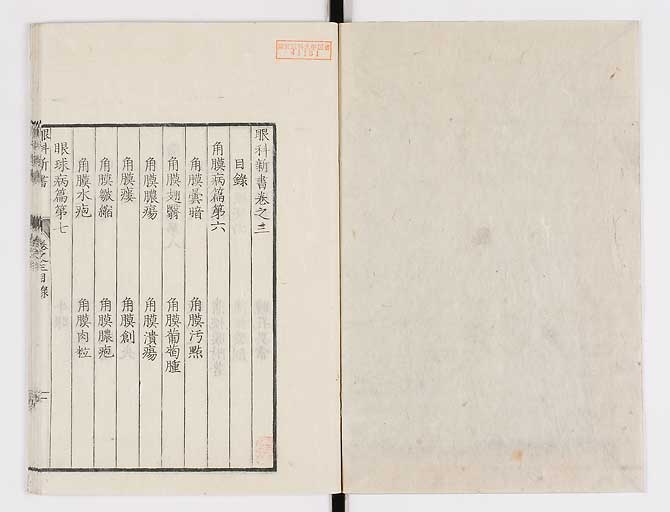 眼科新書卷之三
目錄
角膜病篇第六
角膜曇暗
角膜汚㸃
角膜翅翳
角膜葡萄腫
角膜膿瘍
角膜潰瘍
角膜瘻
角膜創
角膜皺縮
角膜膿疱
角膜水疱
角膜肉粒
眼球病篇第七
眼科新書
卷之三目錄
一